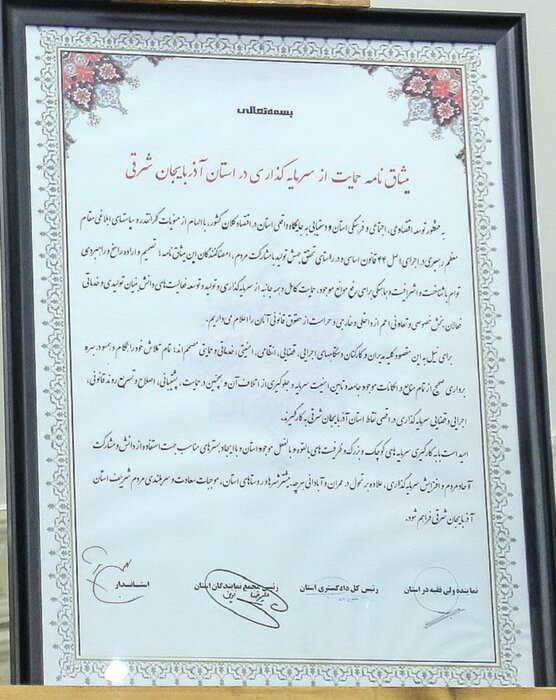 بسمه‌تعالی
میثاق نامه حمایت از سرمایه گذاری در استان آذربایجان شرقی
به منظور توسعه اقتصادی، اجتماعی و فرهنگی استان و دستیابی به جایگاه واقعی استان در اقتصاد کلان کشور، با الهام از منویات گرانقدر و سیاستهای ابلاغی مقام
معظم رهبری در اجرای اصل ۴۴ قانون اساسی و در راستای تحقق جهش تولید با مشارکت مردم، امضا کنندگان این میثاق نامه؛ تصمیم و اراده راسخ و راهبردی
توأم با شناخت و اشراف و هماهنگی برای رفع موانع موجود، حمایت کامل و همه جانبه از سرمایه گذاری و تولید و توسعه فعالیت های دانش بنیان تولیدی و خدماتی
فعالان بخش خصوصی و تعاونی اعم از داخلی و خارجی و حراست از حقوق قانونی آنان را اعلام می داریم.
برای نیل به این مقصود کلیه مدیران و کارکنان دستگاههای اجرایی، قضایی، انتظامی، امنیتی، خدماتی و حمایتی مصمم اند تمام تلاش خود را بکار و بهره
برداری صحیح از تمام منابع و امکانات موجود جامعه و تامین امنیت سرمایه و جلوگیری از اتلاف آن و همچنین در حمایت، پشتیبانی، اصلاح و تسریع روند قانونی،
اجرایی و قضایی سرمایه گذاری در اقصی نقاط استان آذربایجان شرقی به کار گیرند.
امید است با به کارگیری سرمایه های کوچک و بزرگ و ظرفیت های بالقوه و بالفعل موجود استان و با ایجاد بسترهای مناسب جهت استفاده از دانش و مشارکت
آحاد مردم و افزایش سرمایه گذاری، علاوه بر تحول در عمران و آبادانی هرچه بیشتر شهرها و روستاهای استان، موجبات سعادت و سربلندی مردم شریف استان
آذربایجان شرقی فراهم شود.
نماینده ولی فقیه در استان رئیس کل دادگستری استان رئیس مجمع نمایندگان استان استاندار